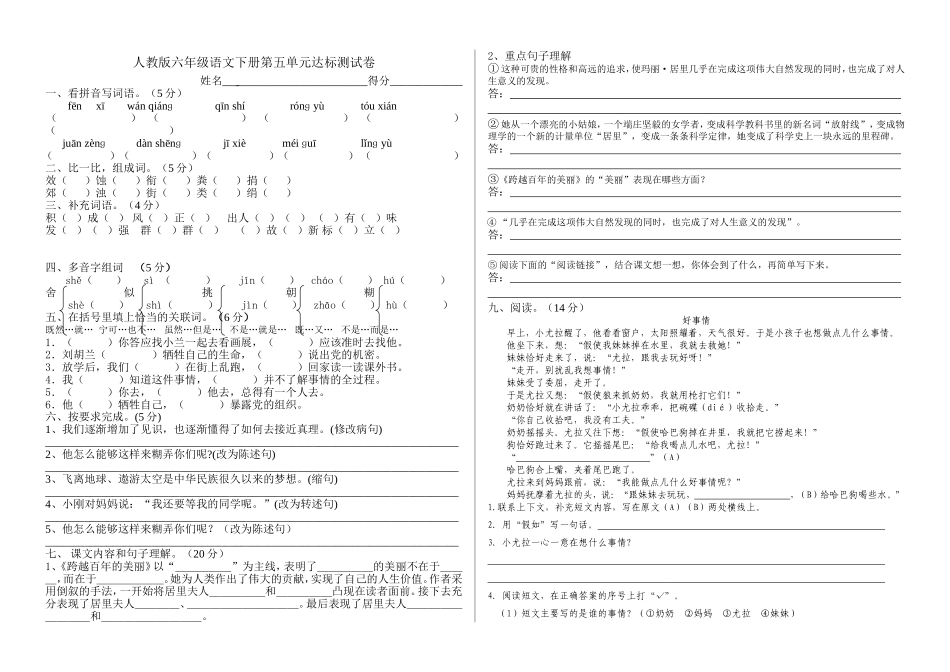 人教版六年级语文下册第五单元达标测试卷
姓名_________________________得分_____________
一、看拼音写词语。（5 分）
fēn xī wán qiáng qīn shí róng yù tóu xián
（ ）（ ）（ ）（ ）（ ）
（ ）
juān zèng dàn shēng jī xiè méi guī lǐng yù
（ ）（ ）（ ）（ ）（ ）
二、比一比，组成词。（5 分）
效（ ）蚀（ ）衔（ ）粪（ ）捐（ ）
郊（ ）浊（ ）街（ ）类（ ）绢（ ）
三、补充词语。（4 分）
积（ ）成（ ） 风（ ）正（ ） 出人（ ）（ ） （ ）有（ ）味
发（ ）（ ）强 群（ ）群（ ） （ ）故（ ）新 标（ ）立（ ）
四、多音字组词 （5 分）
shě（ ） sì （ ） jīn（ ） cháo（ ） hú（ ）
舍 似 挑 朝 糊
shè（ ） shì（ ） jìn（ ） zhāo（ ） hù（ ）
五、在括号里填上恰当的关联词。（6 分）
既然…就… 宁可…也不… 虽然…但是… 不是…就是… 既…又… 不是…而是…
1．（ ）你答应找小兰一起去看画展，（ ）应该准时去找他。
2．刘胡兰（ ）牺牲自己的生命，（ ）说出党的机密。
3．放学后，我们（ ）在街上乱跑，（ ）回家读一读课外书。
4．我（ ）知道这件事情，（ ）并不了解事情的全过程。
5．（ ）你去，（ ）他去，总得有一个人去。
6．他（ ）牺牲自己，（ ）暴露党的组织。
六、按要求完成。(5 分)
1、我们逐渐增加了见识，也逐渐懂得了如何去接近真理。(修改病句)
2、他怎么能够这样来糊弄你们呢?(改为陈述句)
3、飞离地球、遨游太空是中华民族很久以来的梦想。(缩句)
4、小刚对妈妈说：“我还要等我的同学呢。”(改为转述句)
5、他怎么能够这样来糊弄你们呢？（改为陈述句）
七、 课文内容和句子理解。（20 分）
1、《跨越百年的美丽》以“__________”为主线，表明了__________的美丽不在于____
__，而在于____________。她为人类作出了伟大的贡献，实现了自己的人生价值。作者采
用倒叙的手法，一开始将居里夫人__________和__________凸现在读者面前。接下去充
分表现了居里夫人________、____________________。最后表现了居里夫人__________
________和__________________。
2、重点句子理解
①这种可贵的性格和高远的追求，使玛丽·居里几乎在完成这项伟大自然发现的同时，也完成了对人
生意义的发现。
答：
②她从一个漂亮的小姑娘，一个端庄坚毅的女学者，变成科学教科书里的新名词“放射线”，变成物
理学的一个新的计量单位“居里”，变成一条条科学定律，她变成了科学史上一块永远的里程碑。
答：
③《跨越百年的美丽》的“美丽”表现在哪些方面？
答：
④ “几乎在完成这项伟大自然发现的同时，也完成了对人生意义的发现”。
答：
⑤阅读下面的“阅读链接”，结合课文想一想，你体会到了什么，再简单写下来。
答：
九、阅读。（14 分）
好事情
早上，小尤拉醒了，他看看窗户，太阳照耀着，天气很好。于是小孩子也想做点儿什么事情。
他坐下来，想：“假使我妹妹掉在水里，我就去救她！”
妹妹恰好走来了，说：“尤拉，跟我去玩好呀！”
“走开，别扰乱我想事情！”
妹妹受了委屈，走开了。
于是尤拉又想：“假使狼来抓奶奶，我就用枪打它们！”
奶奶恰好就在讲话了：“小尤拉乖乖，把碗碟（dié）收拾走。”
“你自己收拾吧，我没有工夫。”
奶奶摇摇头。尤拉又往下想：“假使哈巴狗掉在井里，我就把它捞起来！”
狗恰好跑过来了。它摇摇尾巴：“给我喝点儿水吧，尤拉！”
“________________________”（A）
哈巴狗合上嘴，夹着尾巴跑了。
尤拉来到妈妈跟前，说：“我能做点儿什么好事情呢？”
妈妈抚摩着尤拉的头，说：“跟妹妹去玩玩，__________________，（B）给哈巴狗喝些水。”
1．联系上下文，补充短文内容，写在原文（A）（B）两处横线上。
2．用“假如”写一句话。
3．小尤拉一心一意在想什么事情？
4．阅读短文，在正确答案的序号上打“√”。
（1）短文主要写的是谁的事情？（①奶奶 ②妈妈 ③尤拉 ④妹妹）